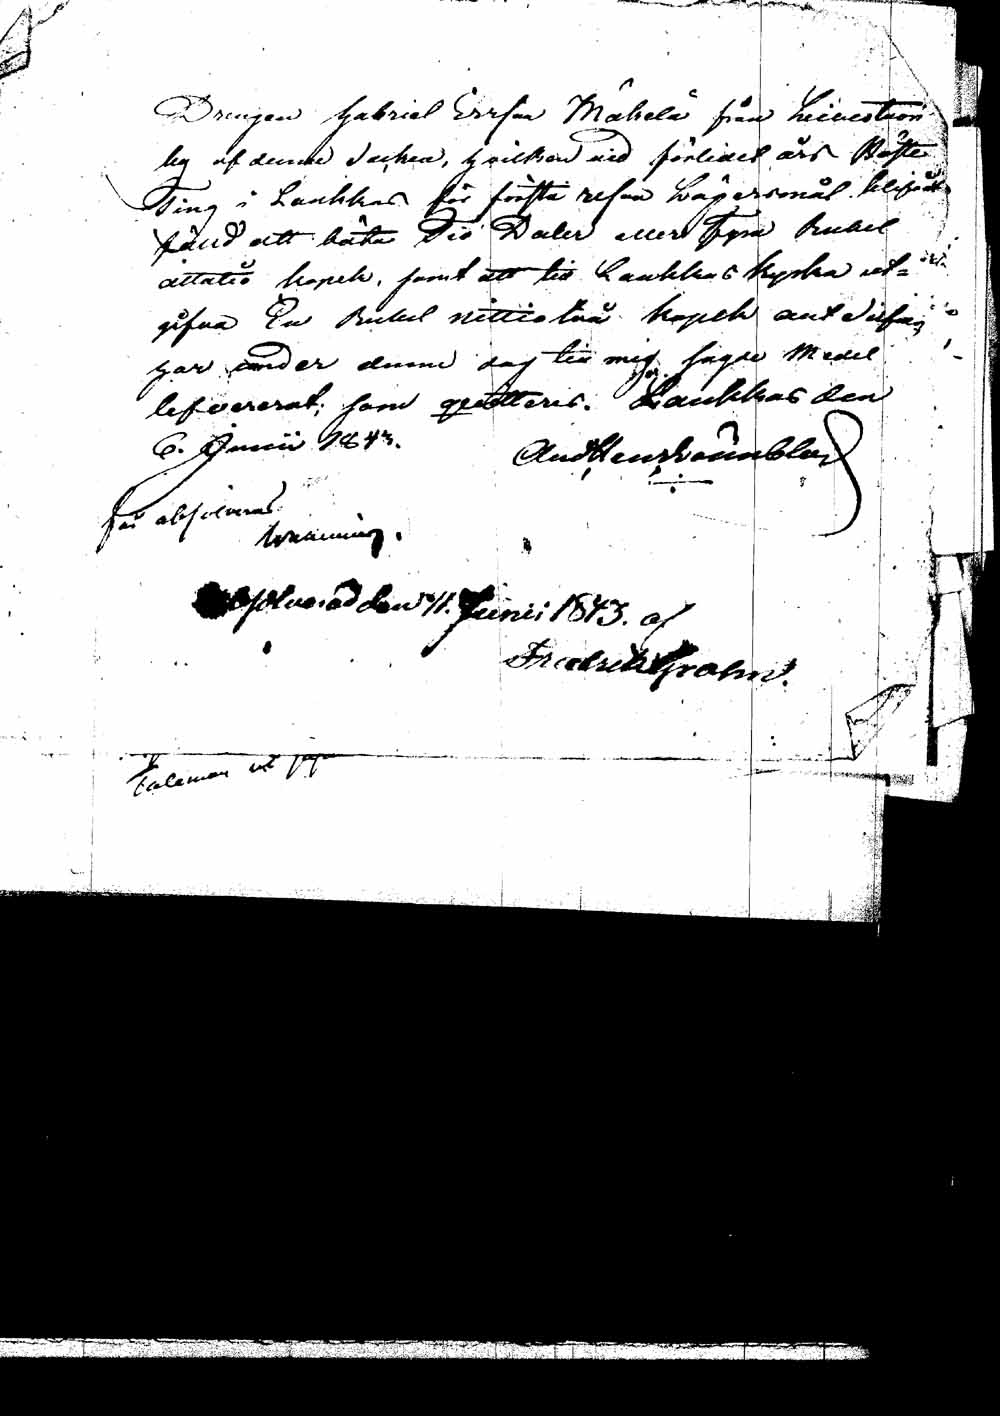 Drengen Gabriel Ersson Mäkelä från Leivestmäki
by af denne Socken, hvilken vid förlidet års Höste
Ting i Laukkas för första resan Lägersmål blifvit
fäld att böta Tio Daler eller Fyra Rubel
åttatio kopek, samt att till Laukkas kyrka ut=
gifva En Rubel nittiotvå kopek ant Silfver
har under denne dag till mig sagde Medel
lefvererat, som qvitteres. Laukkas den
6. Junii 1843.
And Hen
får absolveras
Absolverad den 11. Junii 1843. af
Fredrik Grahn.